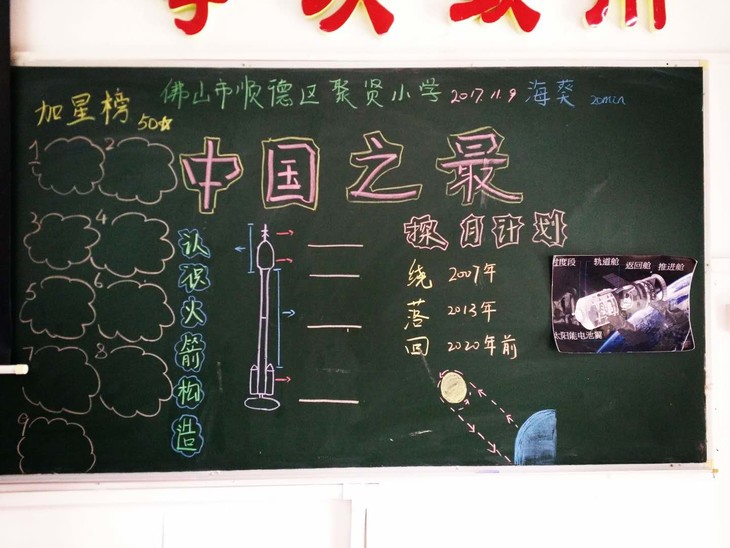 佛山市顺德区聚贤小学 2017.11.9 海葵 20min
加星榜
50☆
中国之最
1 2
3 4
5 6
7 8
9
认识火箭构造
探月计划
绕 2007年
落 2013年
回 2020年前
轨道舱 返回舱 推进舱
太阳能电池翼